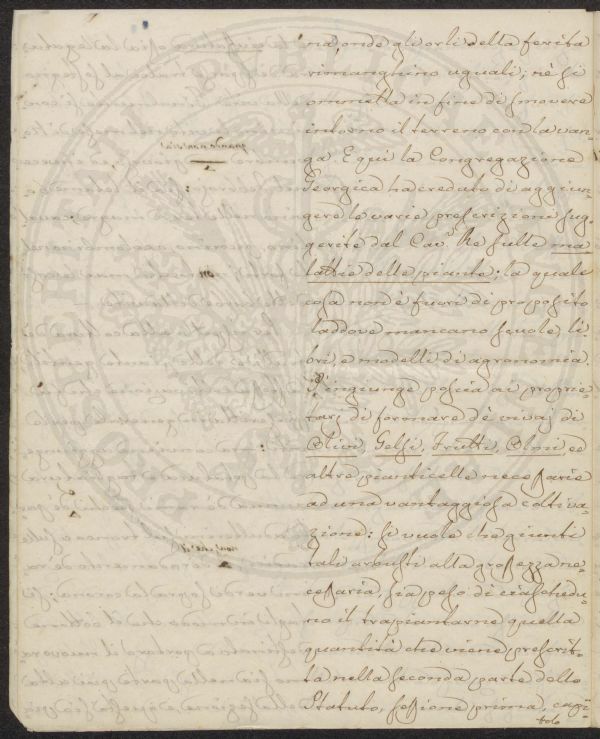 na, onde gli orli della ferita
rimanghino uguali; nè si
ommetta in fine di smovere
intorno il terreno con la van-
ga. E qui la Congregazione
Georgica ha creduto di aggiun-
gere le varie prescrizioni sug-
gerite dal Cav. Re sulle ma-
lattie delle piante; la quale
cosa non è fuori di proposito
laddove mancano scuole, li-
bri, e modelli di agronomia.
S'ingiunge poscia ai proprie-
tarj di formare de' vivaj di
Olivi, Gelsi, Frutti, Olmi ed
altre pianticelle necessarie
ad una vantaggiosa coltiva-
zione: si vuole che giunti
tali arbusti alla grossezza ne-
cessaria, sia peso di ciaschedu-
no il trapiantarne quella
quantità che viene prescrit-
ta nella seconda parte dello
Statuto, sessione prima, capi-
tolo